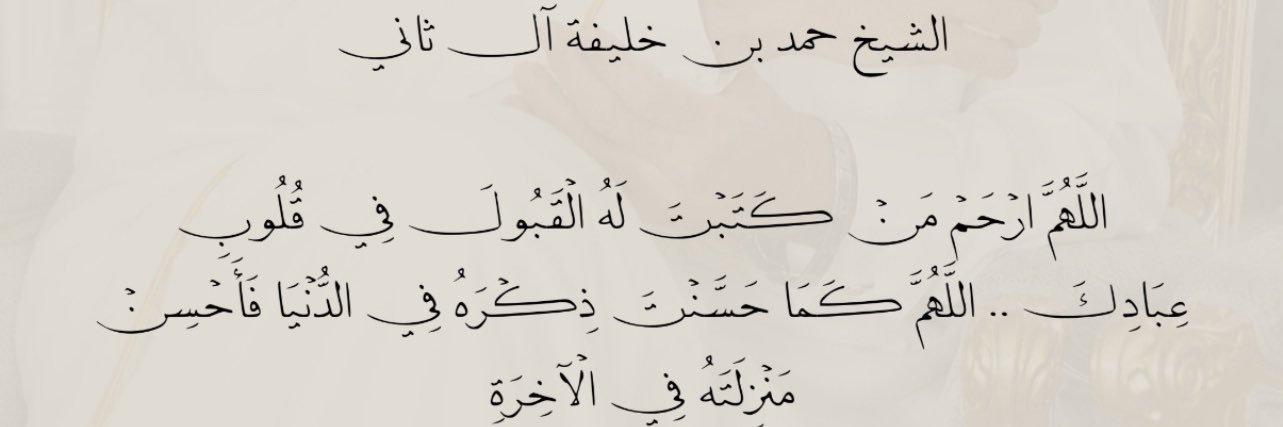 الشيخ حمد بن خليفة آل ثاني
اللَّهُمَّ ارْحَمْ مَنْ كَتَبْتَ لَهُ الْقَبُولَ فِي قُلُوبِ
عِبَادِكَ .. اللَّهُمَّ كَمَا حَسَّنْتَ ذِكْرَهُ فِي الدُّنْيَا فَأَحْسِنْ
مَنْزِلَتَهُ فِي الْآخِرَةِ